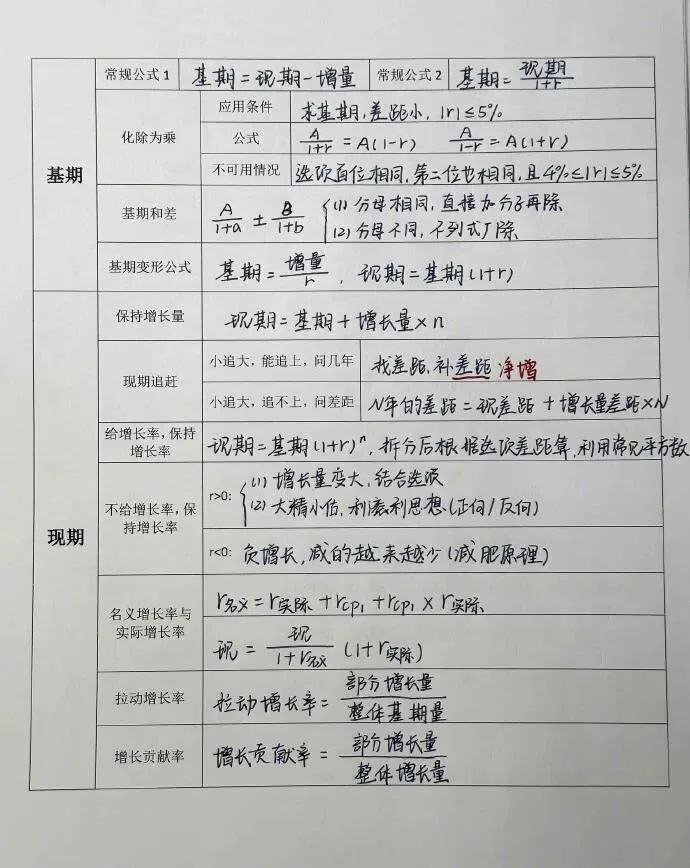 基期
常规公式 1 基期=现期-增量 常规公式 2 基期=现期/1+r
化除为乘
应用条件 求基期,差距小,|r|≤5%
公式 A/1+r=A(1-r) A/1-r=A(1+r)
不可用情况 选项首位相同,第二位也相同,且4%≤|r|≤5%
基期和差 A/1+a ± B/1+b
(1) 分母相同,直接加分子再除
(2) 分母不同,不列式,除
基期变形公式 基期=增量/r, 现期=基期(1+r)
现期
保持增长量 现期=基期+增长量×n
现期追赶
小追大,能追上,问几年 找差距,补差距 净增
小追大,追不上,问差距 N年的差距=现差距+增长量差距×N
给增长率,保持
增长率
现期=基期(1+r)ⁿ,拆分后根据选项差距算,利用常见平方数
不给增长率,保
持增长率
r>0: (1) 增长量变大,结合选项
(2) 大精小估,利滚利思想(正向/反向)
r<0: 负增长,减的越来越少(减肥原理)
名义增长率与
实际增长率
r名义=r实际+rcpi+rcpi×r实际
现=现/1+r名义(1+r实际)
拉动增长率 拉动增长率=部分增长量/整体基期量
增长贡献率 增长贡献率=部分增长量/整体增长量